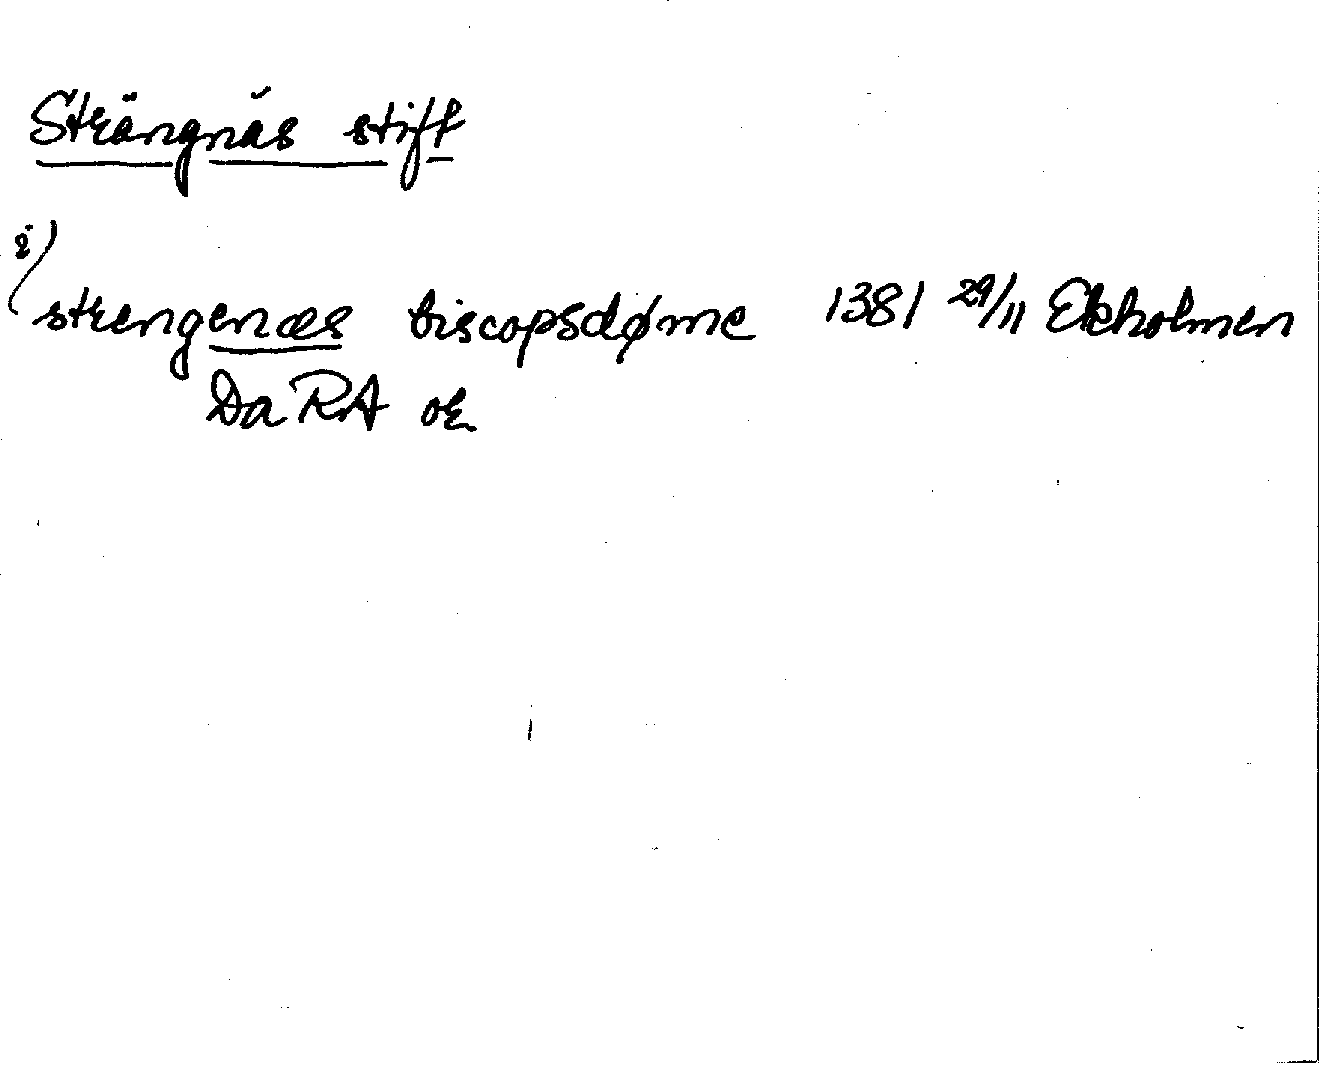 Strängnäs stift
i)
strengenæs biscopsdøme 1381 29/11 Ekholmen
Da RA or.